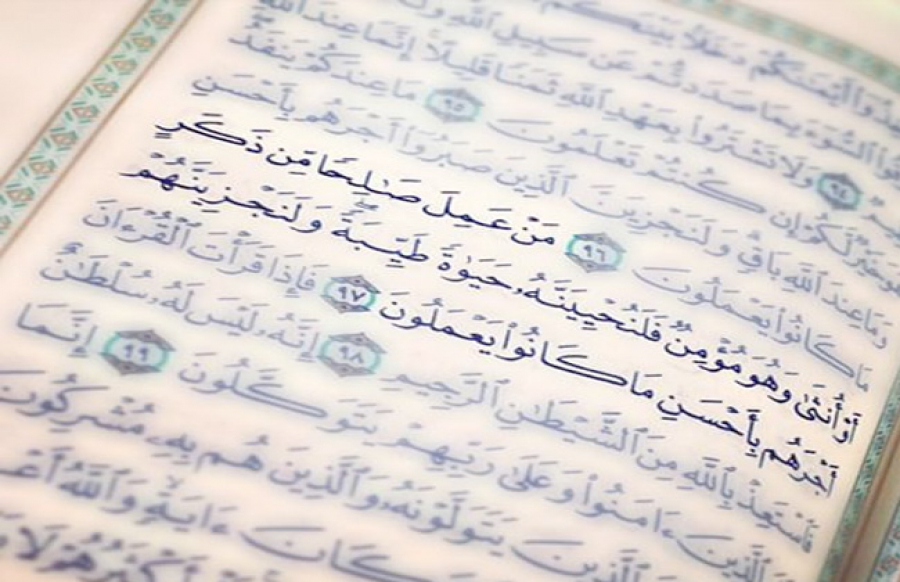 دَخَلًۢا بَيْنَكُمْ
ٱلسُّوٓءَ بِمَا صَدَدتُّمْ عَن سَبِيلِ ٱللَّهِ
۹٤ وَلَا تَشْتَرُوا۟ بِعَهْدِ ٱللَّهِ ثَمَنًا قَلِيلًا إِنَّمَا عِندَ ٱللَّهِ
خَيْرٌ لَّكُمْ إِن كُنتُمْ تَعْلَمُونَ ٩٥ مَا عِندَكُمْ يَنفَدُ
وَمَا عِندَ ٱللَّهِ بَاقٍ وَلَنَجْزِيَنَّ ٱلَّذِينَ صَبَرُوٓا۟ أَجْرَهُم بِأَحْسَنِ
مَا كَانُوا۟ يَعْمَلُونَ ٩٦ مَنْ عَمِلَ صَٰلِحًا مِّن ذَكَرٍ
أَوْ أُنثَىٰ وَهُوَ مُؤْمِنٌ فَلَنُحْيِيَنَّهُۥ حَيَوٰةً طَيِّبَةً وَلَنَجْزِيَنَّهُمْ
أَجْرَهُم بِأَحْسَنِ مَا كَانُوا۟ يَعْمَلُونَ ٩٧ فَإِذَا قَرَأْتَ ٱلْقُرْءَانَ
فَٱسْتَعِذْ بِٱللَّهِ مِنَ ٱلشَّيْطَٰنِ ٱلرَّجِيمِ ٩٨ إِنَّهُۥ لَيْسَ لَهُۥ سُلْطَٰنٌ
ٱلَّذِينَ ءَامَنُوا۟ وَعَلَىٰ رَبِّهِمْ يَتَوَكَّلُونَ ٩٩ إِنَّمَا
ٱلَّذِينَ يَتَوَلَّوْنَهُۥ وَٱلَّذِينَ هُم بِهِۦ مُشْرِكُونَ
ءَايَةٍ وَٱللَّهُ